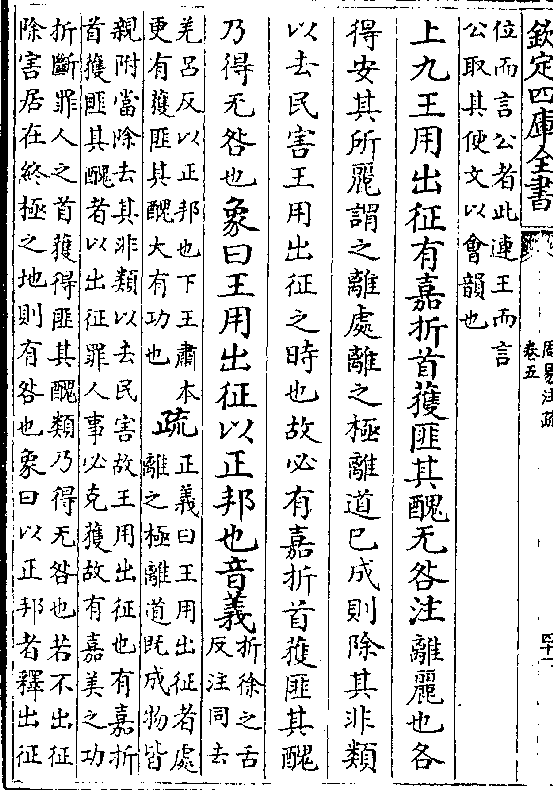 欽定四庫全書
周易注疏
卷五
位而言公者此連王而言
公取其便文以會韻也
上九王用出征有嘉折首獲匪其醜无咎注離麗也各
得安其所麗謂之離處離之極離道已成則除其非類
以去民害王用出征之時也故必有嘉折首獲匪其醜
乃得无咎也象曰王用出征以正邦也音義
折徐之舌
反注同去
羌呂反以正邦也下王肅本
更有獲匪其醜大有功也
疏
正義曰王用出征者處
離之極離道既成物皆
親附當除去其非類以去民害故王用出征也有嘉折
首獲匪其醜者以出征罪人事必克獲故有嘉美之功
折斷罪人之首獲得匪其醜類乃得无咎也若不出征
除害居在終極之地則有咎也象曰以正邦者釋出征